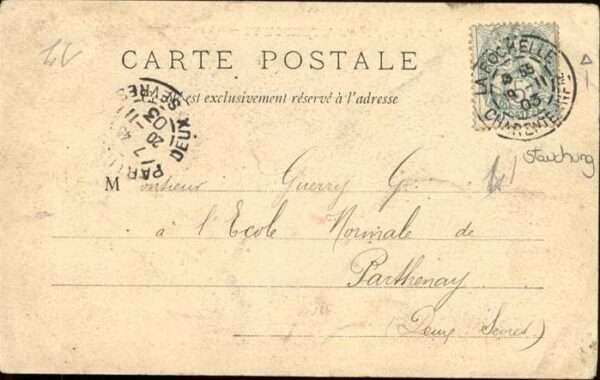 CARTE POSTALE
est exclusivement réservé à l'adresse
LA ROCHELLE
CHARENTE INFRE
11
03
DEUX SEVRES
7 45
20 - 11
03
Stauchung
Monsieur Guerry G.
à l'Ecole Normale de
Parthenay
(Deux Sevres)